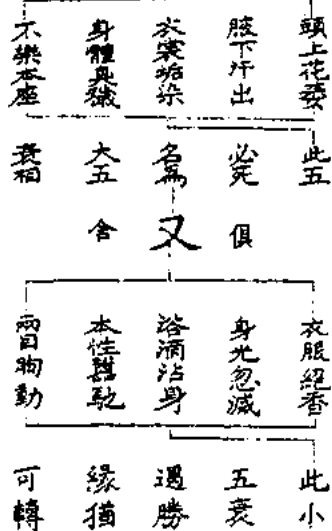 頭上花萎
腋下汗出
衣裳垢染
身體臭穢
不樂本座
此五
必死
名為
大五
衰相
俱
又
舍
衣服絕香
身光忽滅
浴滴沾身
本性囂馳
兩目眴動
此小
五衰
遇勝
緣猶
可轉